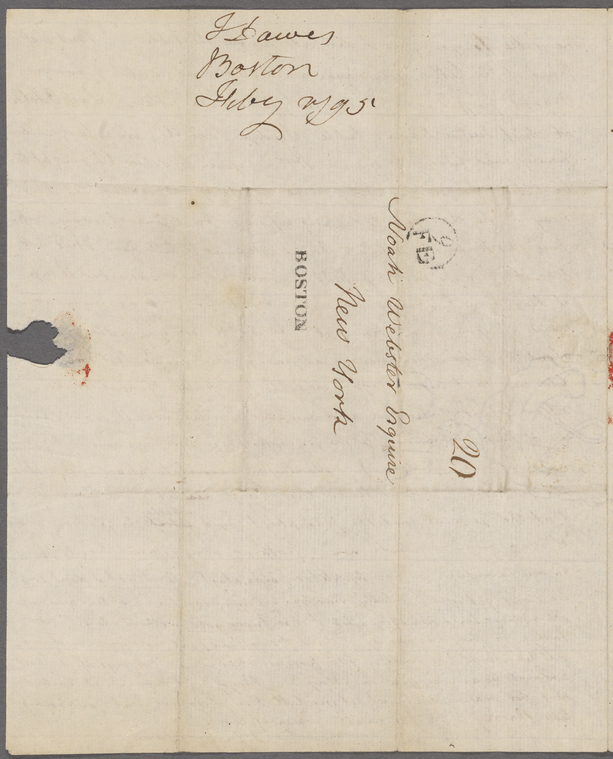 T Dawes
Boston
Feby 1795
Noah Webster Esquire
New York
BOSTON
9
FE
20